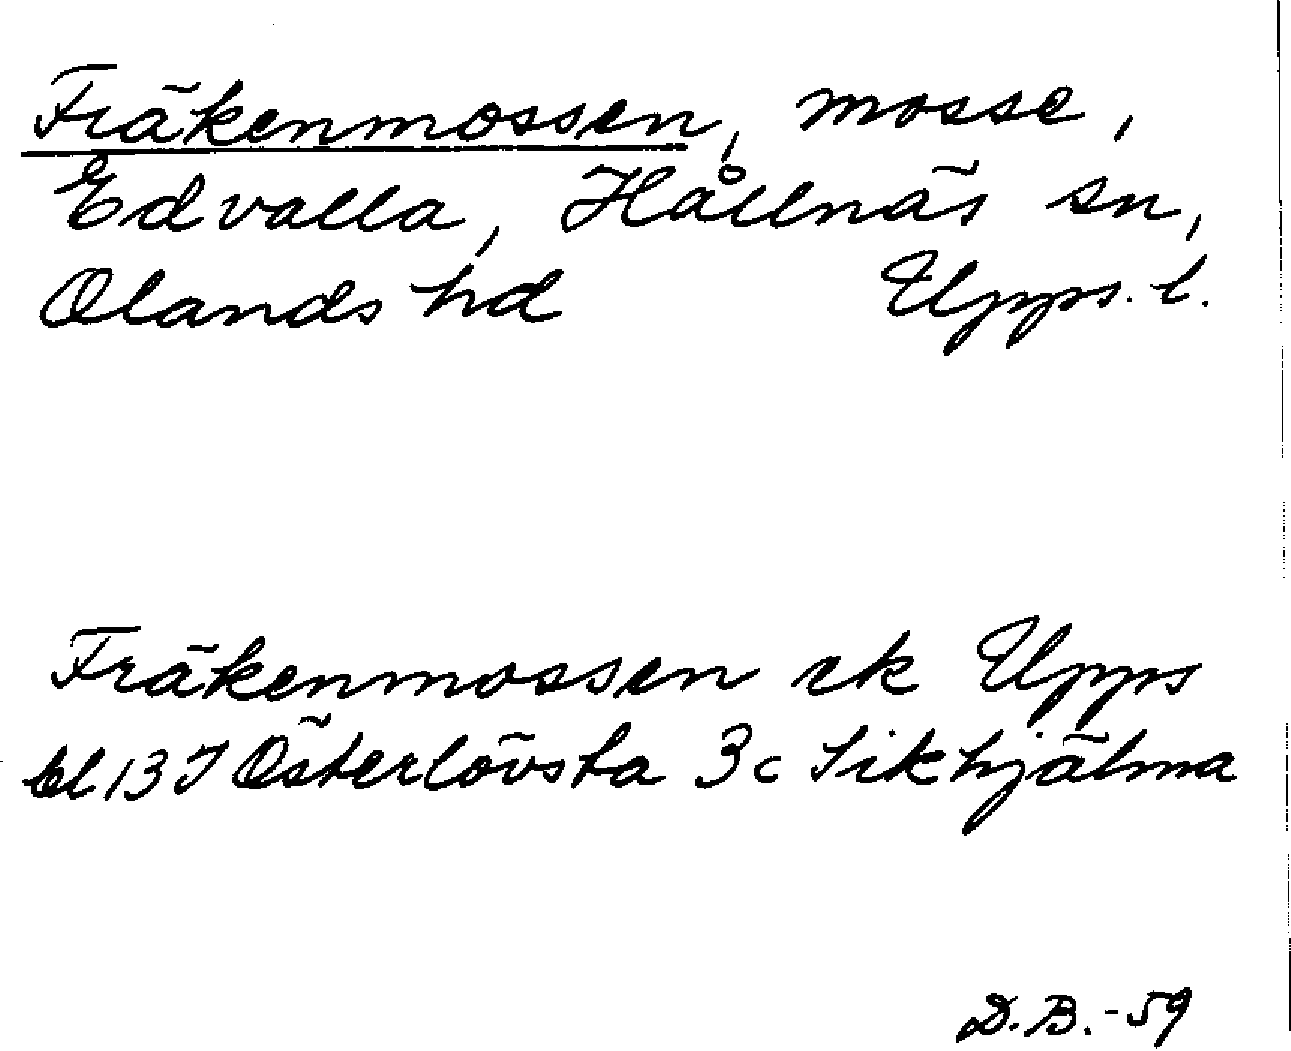 Fräkenmossen, mosse,
Edvalla, Hållnäs sn,
Olands hd Upps. l.
Fräkenmossen ek Upps
bl 13 I Österlövsta 3c Sikhjälma
D.B.-59